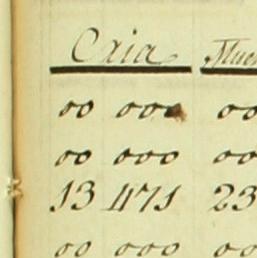 Cria
00 000 00
00 000 00
13 471 23
00 000 00